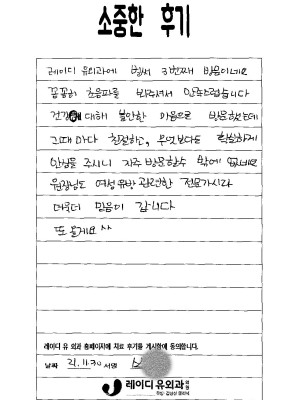 소중한 후기
레이디 유외과에 벌써 3번째 방문이네요
꼼꼼히 초음파를 봐주셔서 만족스럽습니다
건강에 대해 불안한 마음으로 방문했는데
그때마다 친절하고, 무엇보다도 확실하게
안심을 주시니 자주 방문할수 밖에 없네요
원장님도 여성유방 관련한 전문가시라
더욱더 믿음이 갑니다
또 올게요 ^^
레이디 유 외과 홈페이지에 치료 후기를 게시함에 동의합니다.
날짜 21.11.30 서명
레이디유외과의원